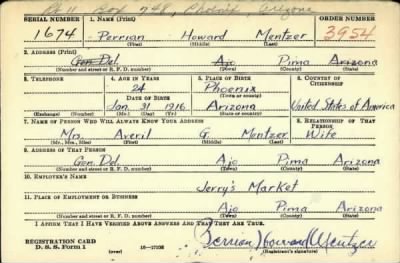 Rt 11 Box 748, Phoenix, Arizona
SERIAL NUMBER 1. NAME (Print) ORDER NUMBER
1674 Perrian Howard Mentzer 3954
(First) (Middle) (Last)
2. ADDRESS (Print)
Gen Del. Ajo Pima Arizona
(Number and street or R. F. D. number) (Town) (County) (State)
3. TELEPHONE 4. AGE IN YEARS 5. PLACE OF BIRTH 6. COUNTRY OF CITIZENSHIP
24 Phoenix
DATE OF BIRTH (Town or county)
Jan. 31 1916 Arizona United States of America
(Exchange) (Number) (Mo.) (Day) (Yr.) (State or country)
7. NAME OF PERSON WHO WILL ALWAYS KNOW YOUR ADDRESS 8. RELATIONSHIP OF THAT PERSON
Mrs. Averil G. Mentzer Wife
(Mr., Mrs., Miss) (First) (Middle) (Last)
9. ADDRESS OF THAT PERSON
Gen. Del. Ajo Pima Arizona
(Number and street or R. F. D. number) (Town) (County) (State)
10. EMPLOYER'S NAME
Jerry's Market
11. PLACE OF EMPLOYMENT OR BUSINESS
Ajo Pima Arizona
(Number and street or R. F. D. number) (Town) (County) (State)
I AFFIRM THAT I HAVE VERIFIED ABOVE ANSWERS AND THAT THEY ARE TRUE.
REGISTRATION CARD
D. S. S. Form 1 (over) Perrian Howard Mentzer
(Registrant's signature)